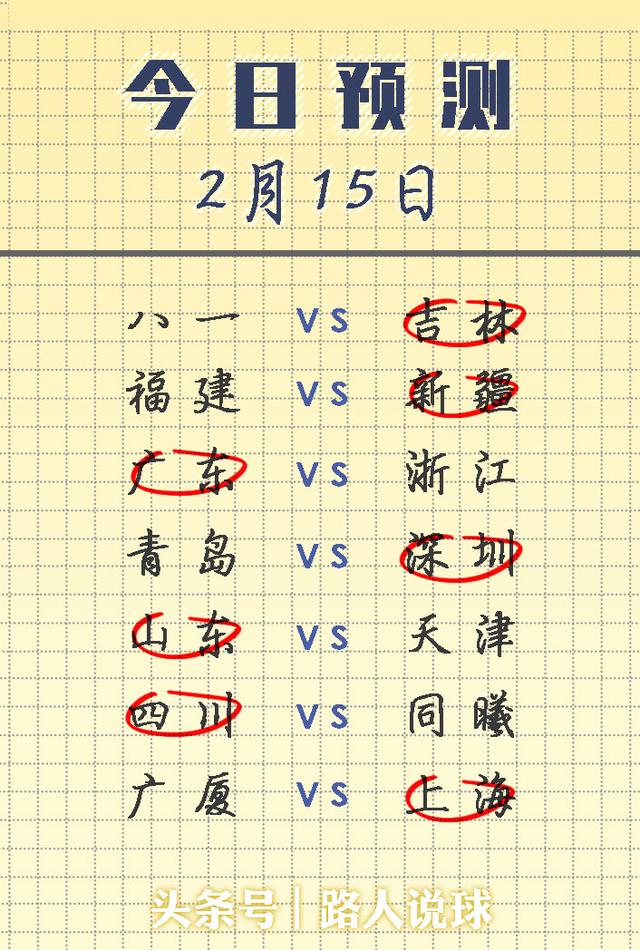 今日预测
2月15日
八一 VS 吉林
福建 VS 新疆
广东 VS 浙江
青岛 VS 深圳
山东 VS 天津
四川 VS 同曦
广厦 VS 上海
头条号|路人说球